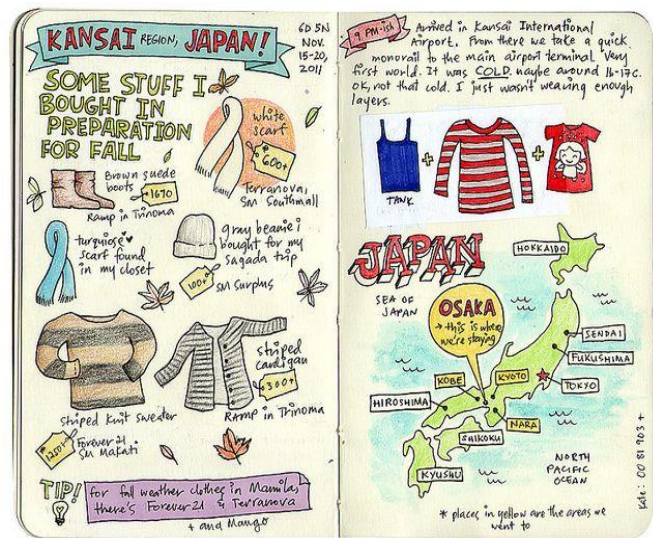 KANSAI REGION, JAPAN!
6D 5N
NOV.
15-20,
2011
SOME STUFF I
BOUGHT IN
PREPARATION
FOR FALL
white
scarf
600+
Terranova,
SM Southmall
Brown suede
boots
1670
Ramp in Trinoma
turquoise
scarf found
in my closet
gray beanie i
bought for my
sagada trip
100+
SM Surplus
striped knit sweater
1250+
Forever 21
SM Makati
striped
cardigan
300+
Ramp in Trinoma
TIP!
for fall weather clothes in Manila,
there's Forever 21 & Terranova
+ and Mango
9 PM-ish
Arrived in Kansai International
Airport. From there we take a quick
monorail to the main airport terminal. Very
first world. It was COLD. maybe around 16-17c.
OK, not that cold. I just wasn't wearing enough
layers.
TANK
+
+
JAPAN
HOKKAIDO
SEA OF
JAPAN
OSAKA
→ this is where
we're staying
SENDAI
FUKUSHIMA
TOKYO
KOBE
KYOTO
HIROSHIMA
NARA
SHIKOKU
KYUSHU
NORTH
PACIFIC
OCEAN
* places in yellow are the areas we
went to